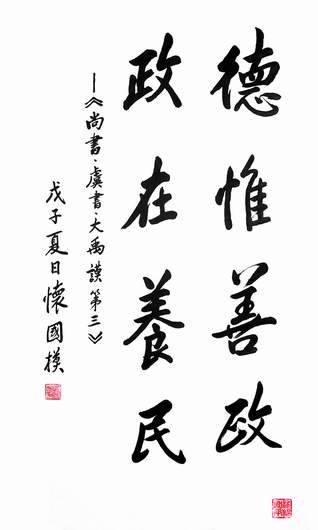 德惟善政
政在養民
—《尚書·虞書·大禹謨第三》
戊子夏日懷國模